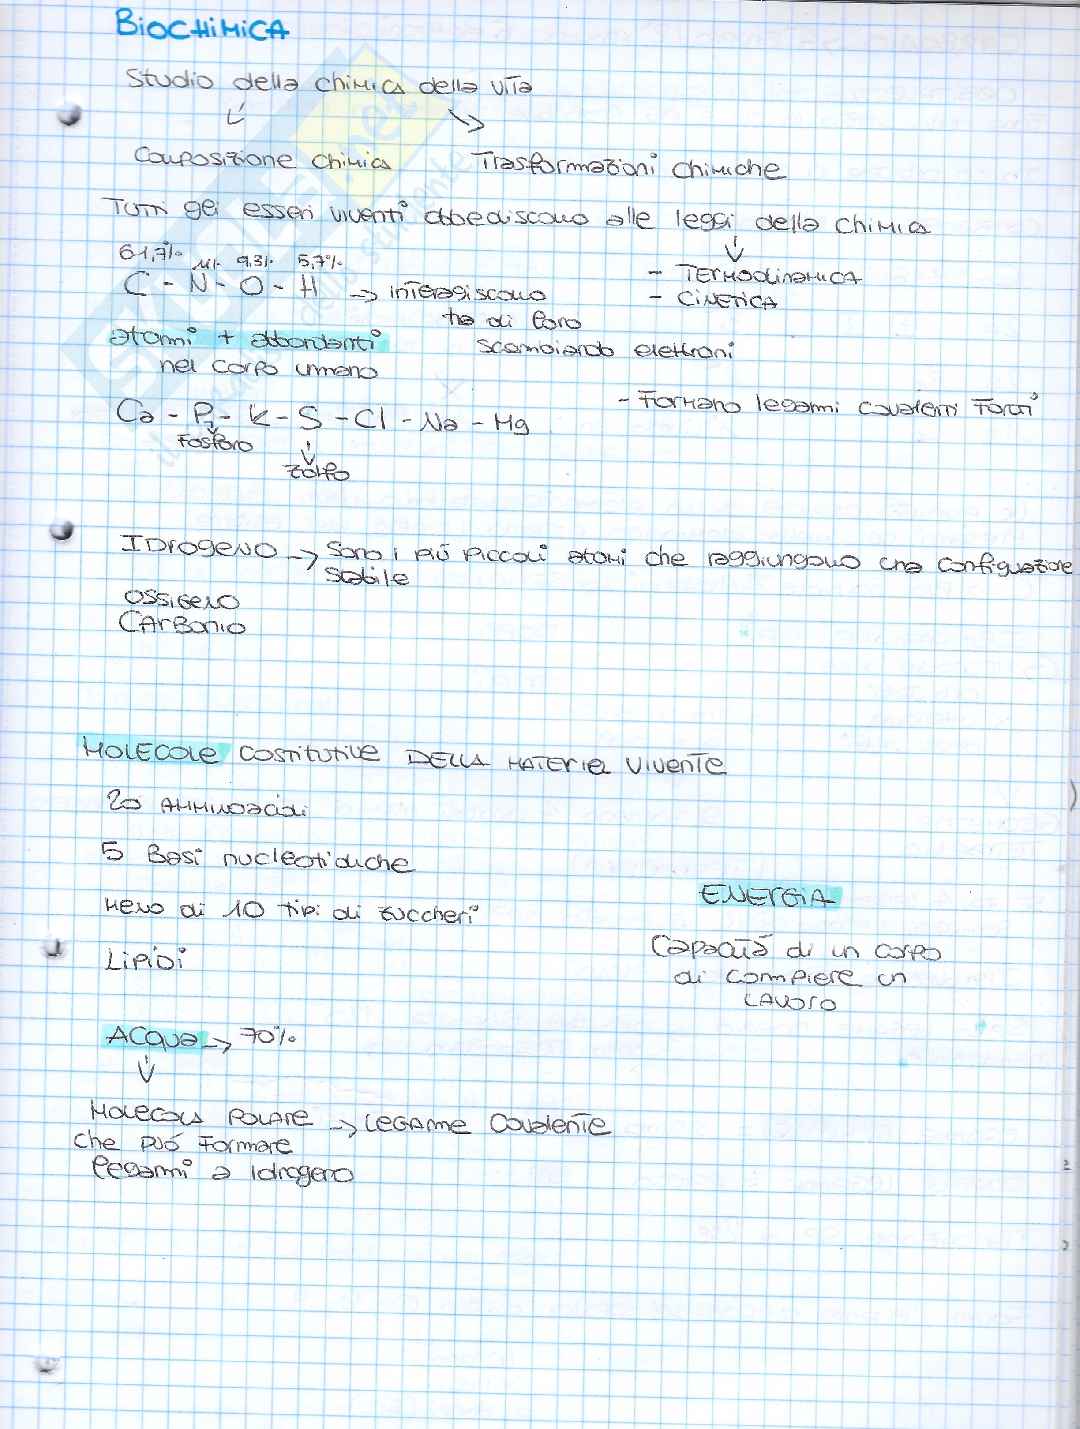 BIOCHIMICA
Studio della chimica della vita
Composizione chimia
Trasformazioni chimiche
Tutti gei esseri viventi obbediscono alle leggi della chimica
- TERMODINAMICA
- CINETICA
61,7% 11% 9,3% 5,7%
C - N - O - H → interagiscono
tra di loro
scambiando elettroni
atomi + abbondanti
nel corpo umano
- Formano legami covalenti forti
Ca - P - K - S - Cl - Na - Mg
Fosforo
zolfo
IDrogeno → Sono i più piccoli atomi che raggiungono una configurazione
stabile
OSSIGENO
CArBonio
MOLECOLE COSTITUTIVE DELLA MATERIA VIVENTE
20 AMMINOacidi
5 Basi nucleotidiche
Meno di 10 tipi di zuccheri
LIPIDI
ENERGIA
Capacità di un corpo
di compiere un
LAVORO
ACQUA → 70%
MOLECOLA POLARE → LEGAME Covalente
che può formare
legami a Idrogeno